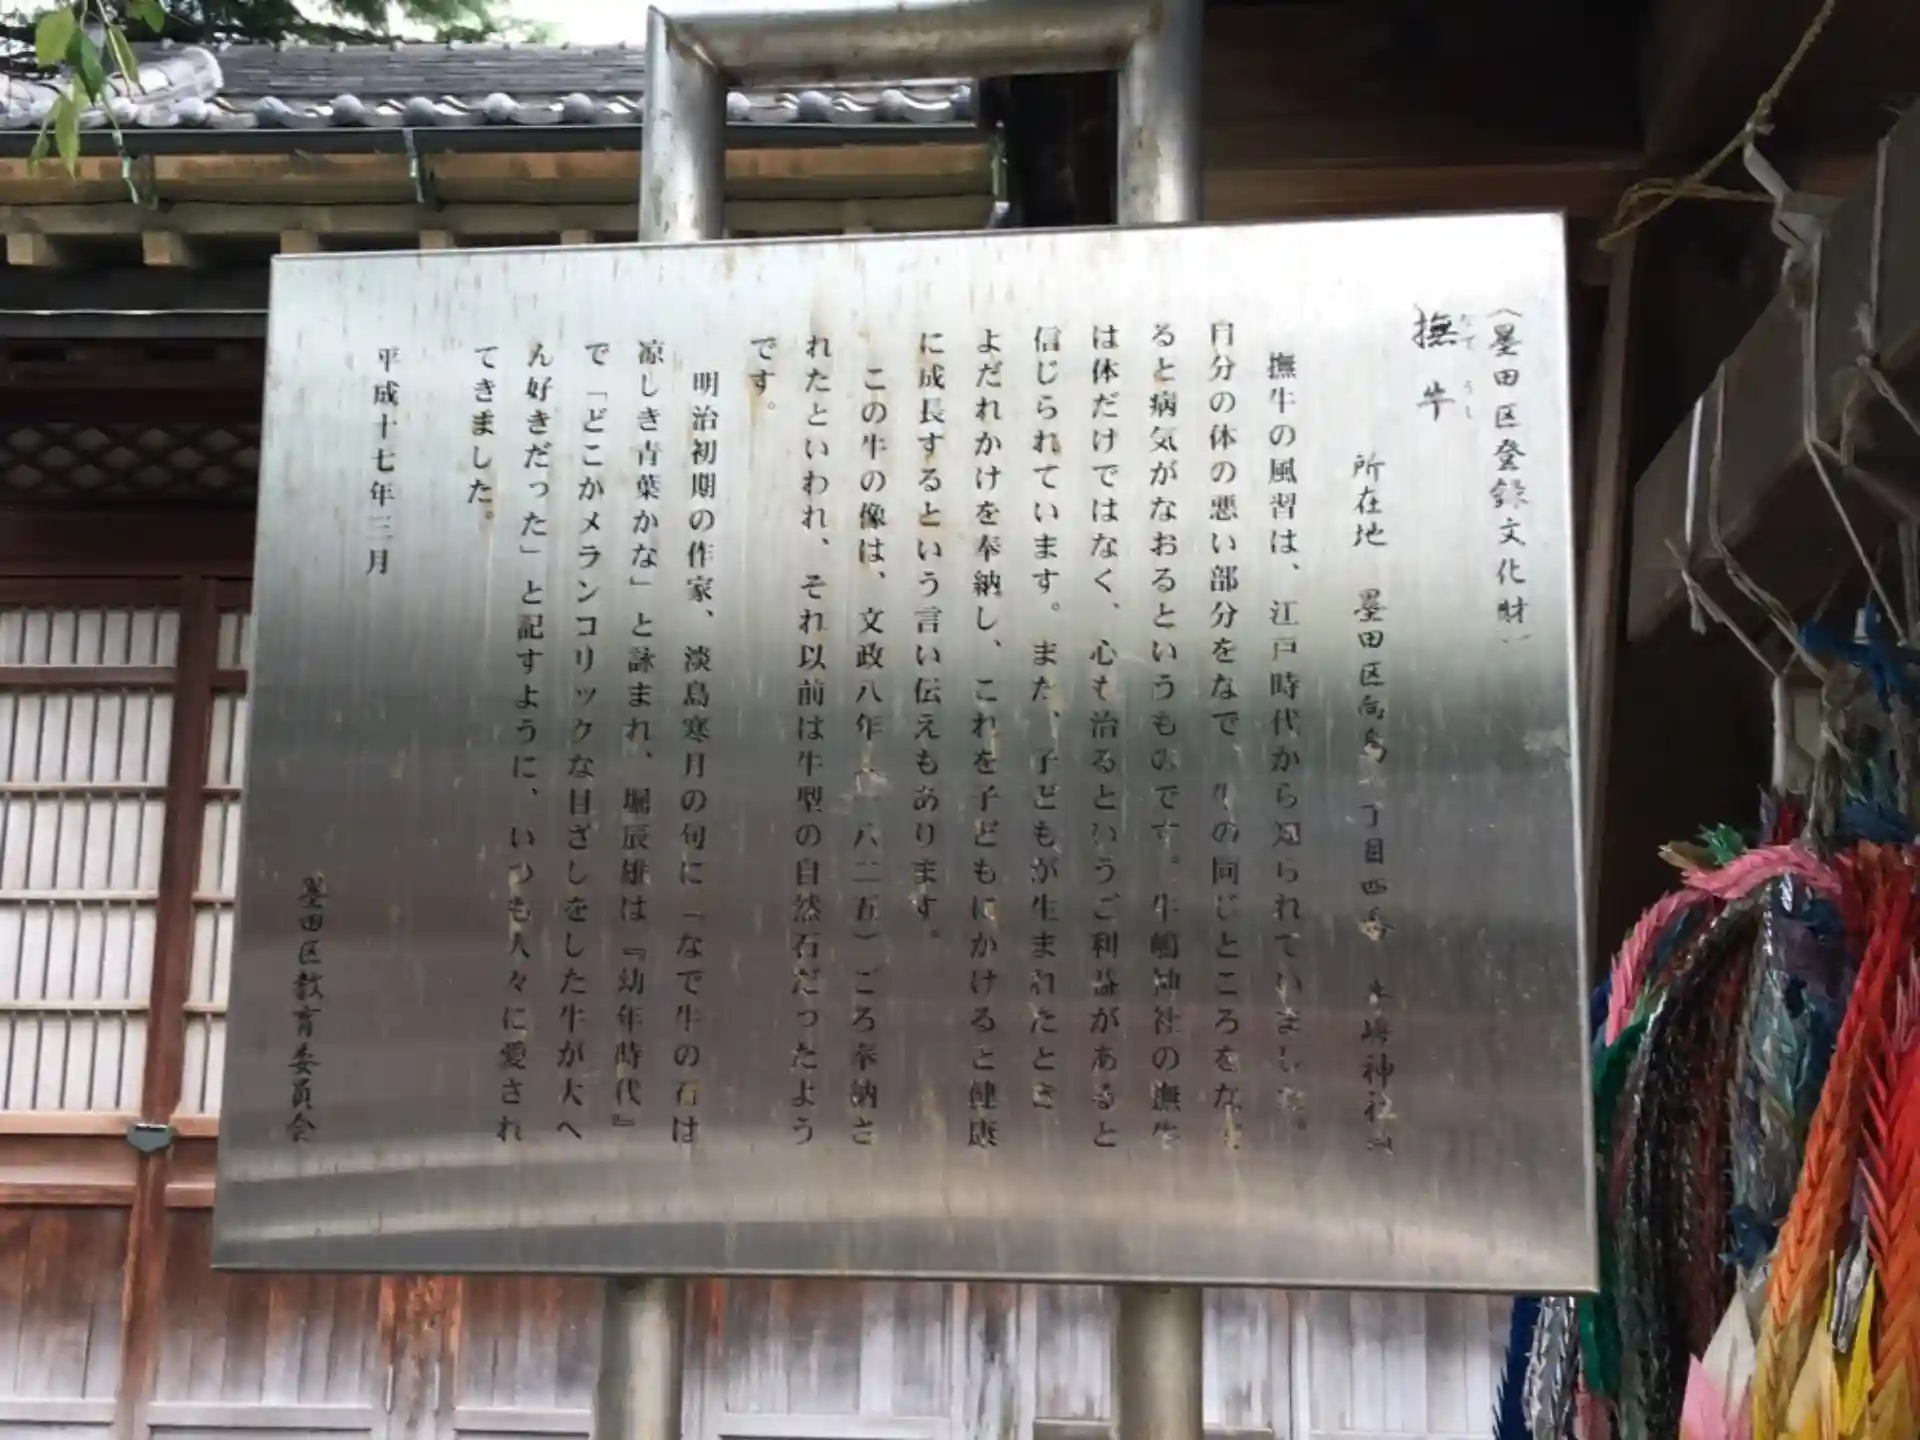 〈墨田区登録文化財〉
撫牛
なで うし
所在地 墨田区向島 丁目四番 牛嶋神社内
撫牛の風習は、江戸時代から知られていました。
自分の体の悪い部分をなで、牛の同じところをなで
ると病気がなおるというものです。牛嶋神社の撫牛
は体だけではなく、心も治るというご利益があると
信じられています。また、子どもが生まれたとき
よだれかけを奉納し、これを子どもにかけると健康
に成長するという言い伝えもあります。
この牛の像は、文政八年(一八二五)ごろ奉納さ
れたといわれ、それ以前は牛型の自然石だったよう
です。
明治初期の作家、淡島寒月の句に「なで牛の石は
凉しき青葉かな」と詠まれ、堀辰雄は『幼年時代』
で「どこかメランコリックな目ざしをした牛が大へ
ん好きだった」と記すように、いつも人々に愛され
てきました。
平成十七年三月
墨田区教育委員会